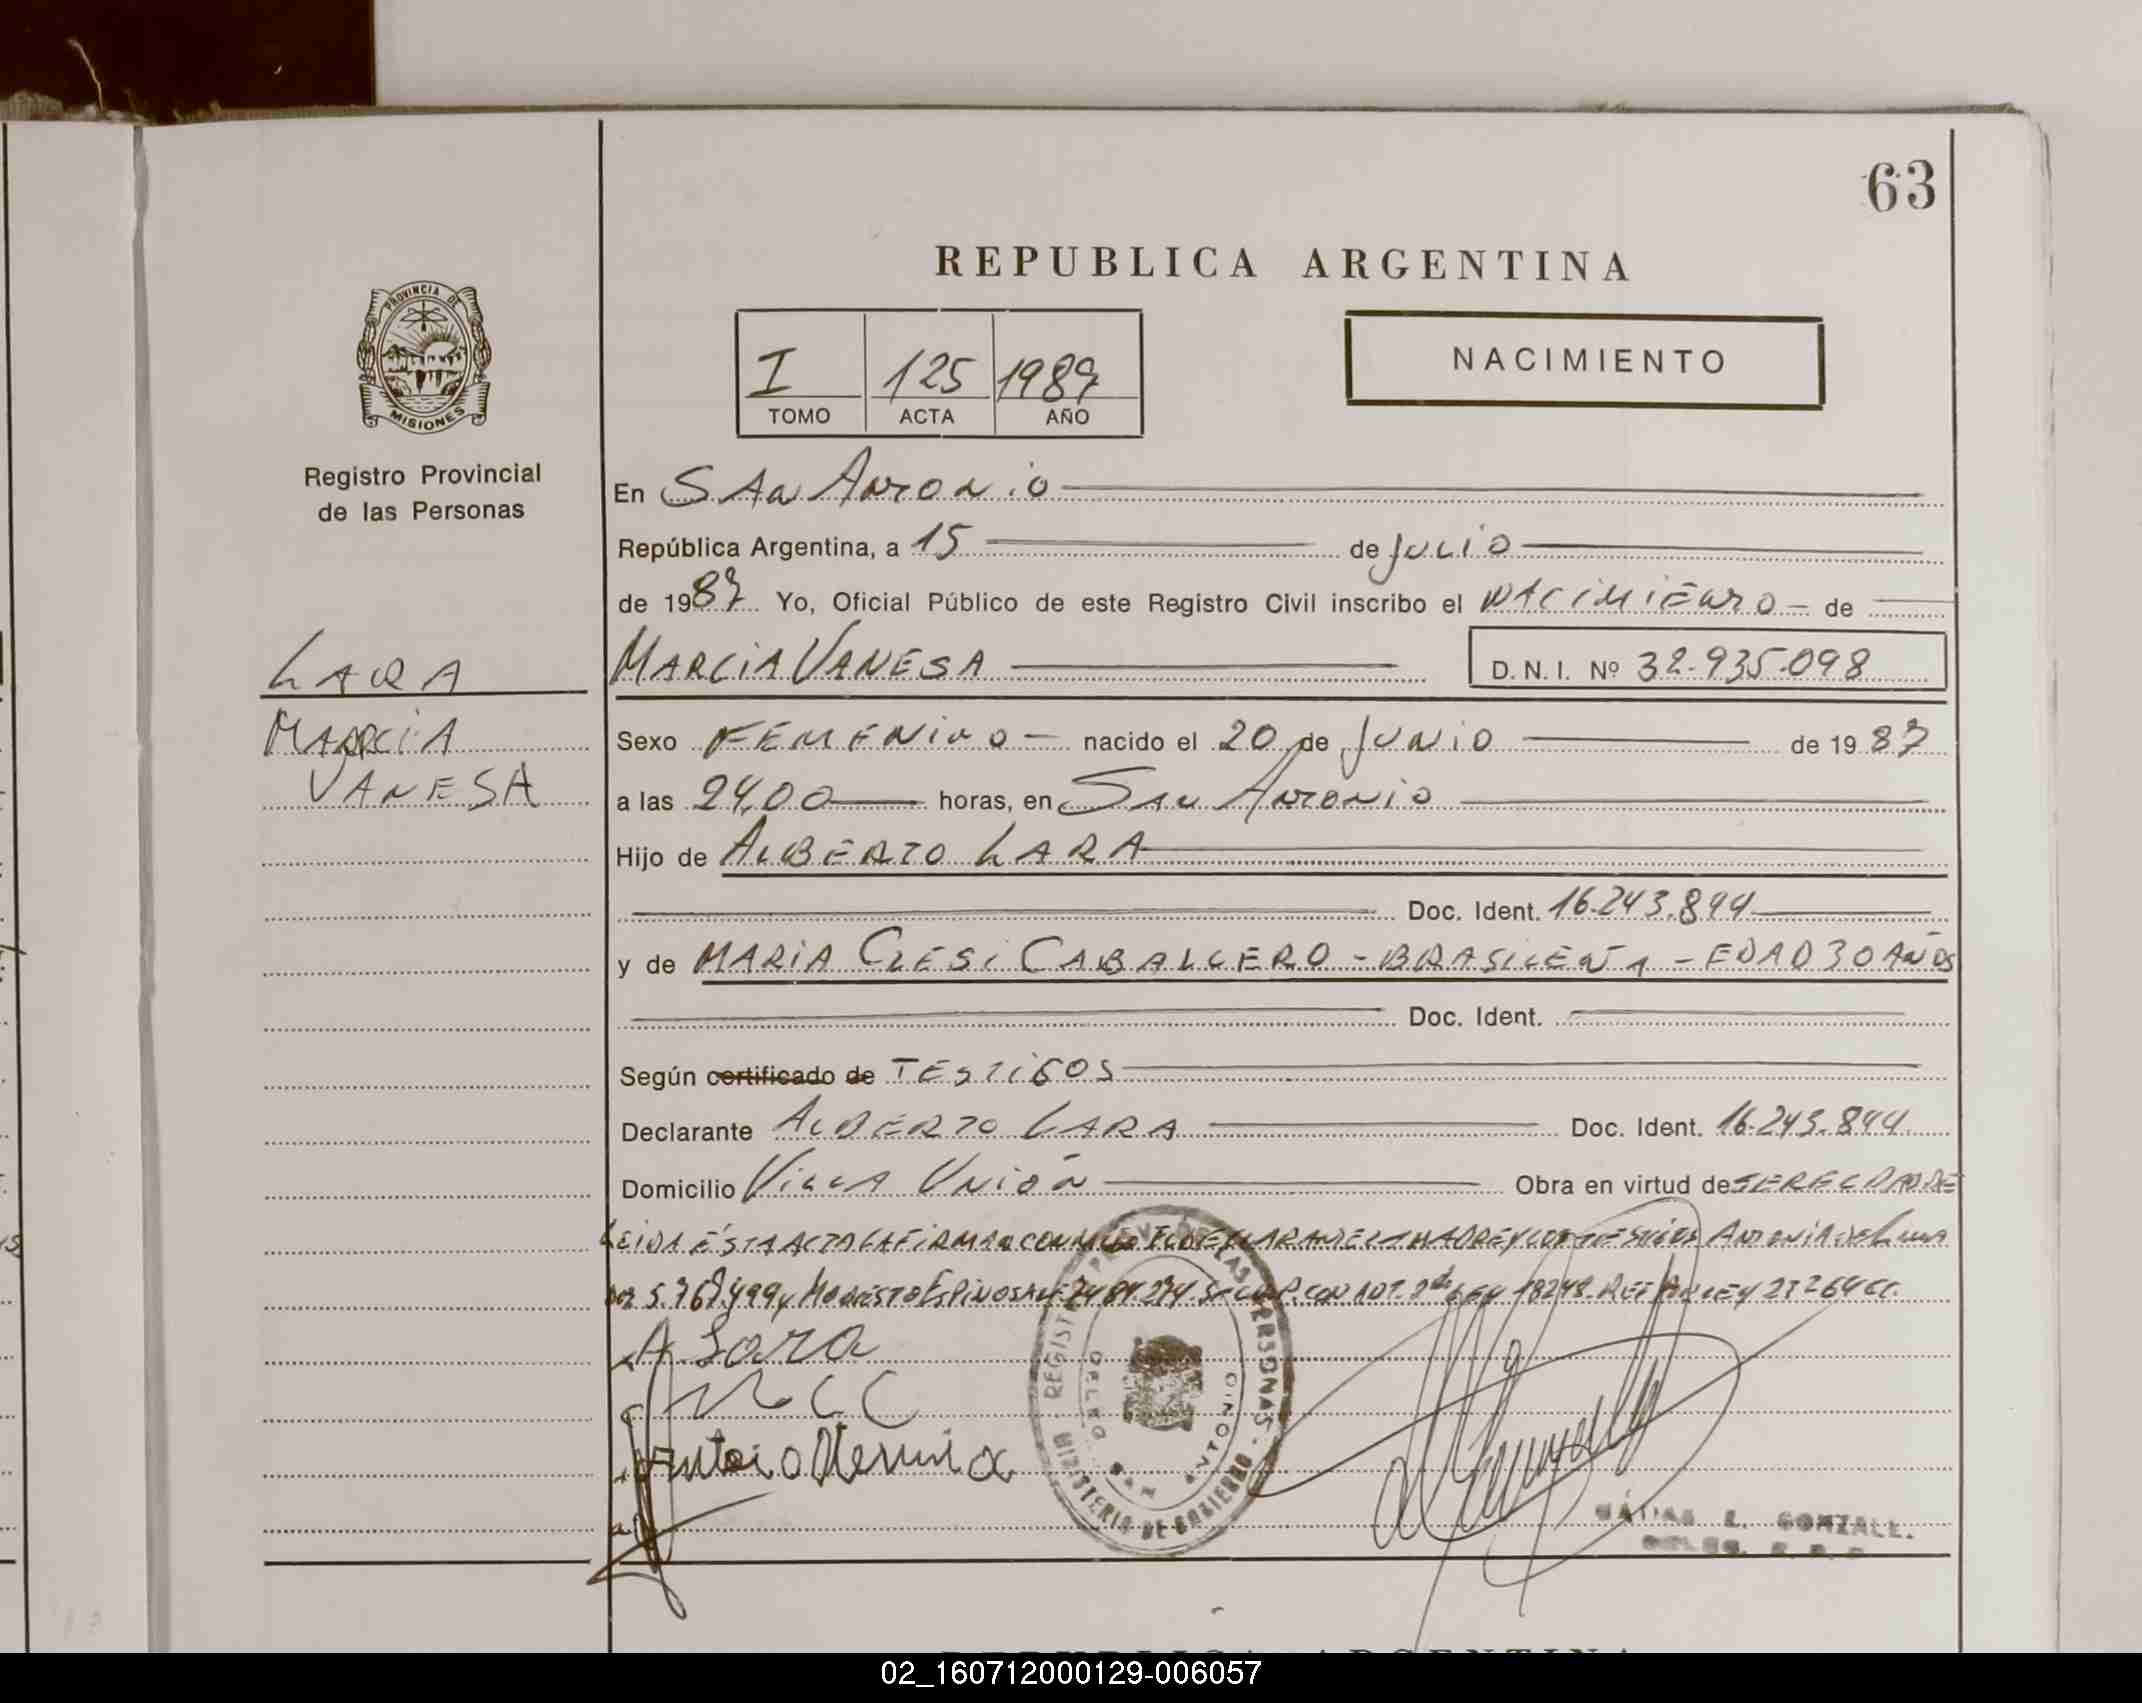 63
REPUBLICA ARGENTINA
PROVINCIA DE
MISIONES
Registro Provincial
de las Personas
I 125 1987
TOMO ACTA AÑO
NACIMIENTO
En San Antonio
República Argentina, a 15 de Julio
de 1987 Yo, Oficial Público de este Registro Civil inscribo el NACIMIENTO - de
LARA
MARCIA VANESA D.N.I. Nº 32.935.098
MARCIA
VANESA
Sexo FEMENINO - nacido el 20 de JUNIO de 1987
a las 24,00 horas, en San Antonio
Hijo de ALBERTO LARA
Doc. Ident. 16.243.894
y de MARIA CLESI CABALLERO - BRASILEÑA - EDAD 30 AÑOS
Doc. Ident.
Según certificado de TESTIGOS
Declarante ALBERTO LARA Doc. Ident. 16.243.894
Domicilio Villa Unión Obra en virtud de
LEIDA ÉSTA ACTA LA FIRMAN CONMIGO EL DECLARANTE LA MADRE Y LOS TESTIGOS
MODESTO ESPINOSA LEY 18248. REF. LEY 23264
A Lara
M C C
MINISTERIO DE GOBIERNO
REGISTRO DE LAS PERSONAS
SAN ANTONIO
GONZALE
02_160712000129-006057